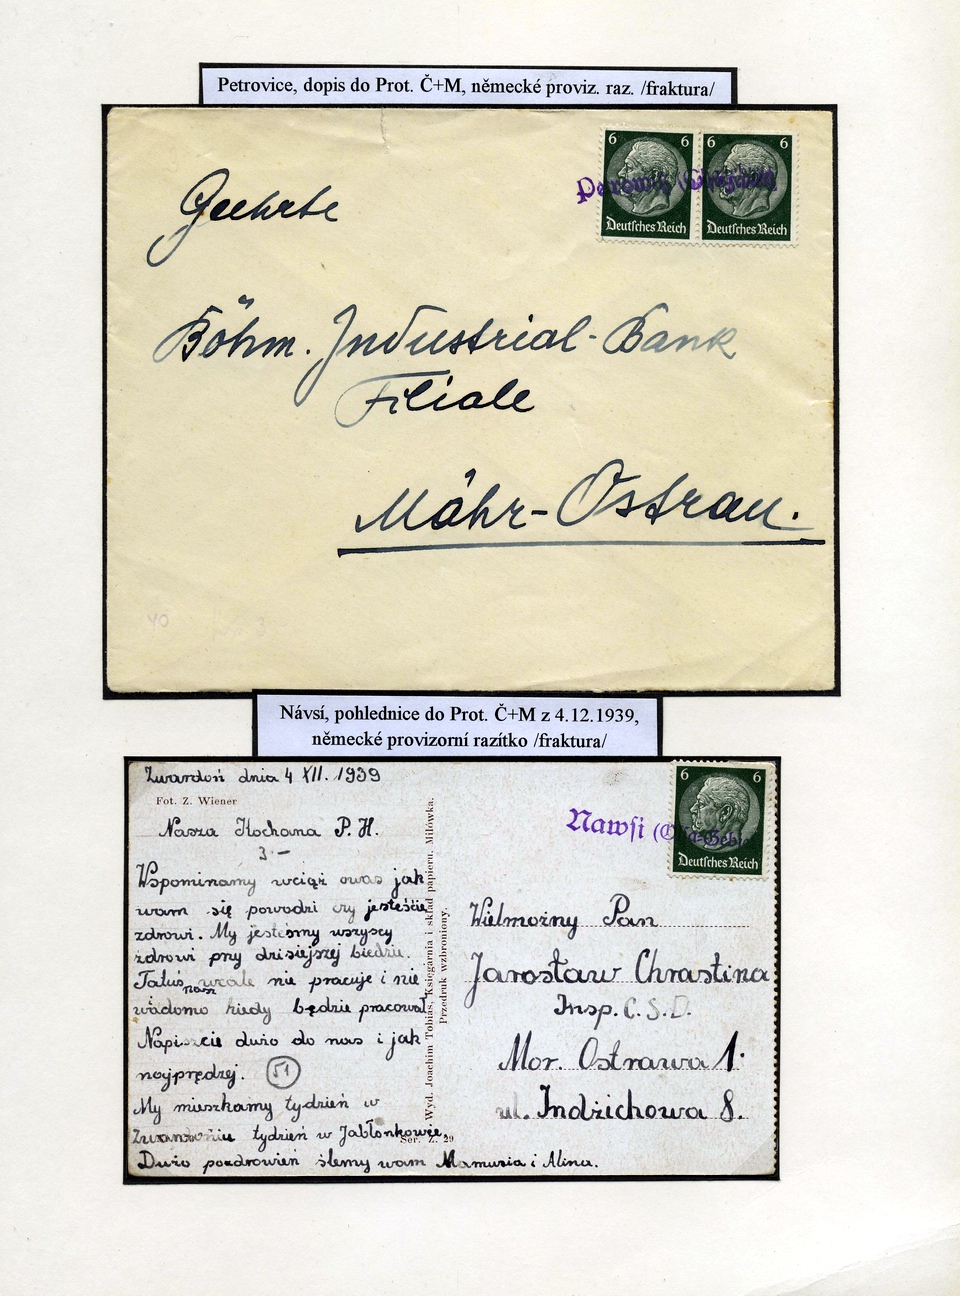 Petrovice, dopis do Prot. Č+M, německé proviz. raz. /fraktura/
6 6 6 6
Deutsches Reich Deutsches Reich
Geehrte
Böhm. Industrial-Bank
Filiale
Mähr-Ostrau.
40
Návsí, pohlednice do Prot. Č+M z 4.12.1939,
německé provizorní razítko /fraktura/
Zwardoń dnia 4 XII. 1939
Fot. Z. Wiener
Nasza Kochana P. H.
3.—
Wspominamy wciąż owas jak
wam się powodzi czy jesteście
zdrowi. My jesteśmy wszyscy
zdrowi przy dzisiejszej biedzie.
Tatuś wcale nie pracuje i nie
nam
wiadomo kiedy będzie pracował.
Napiszcie dużo do nas i jak
najprędzej. 51
My mieszkamy tydzień w
Zwardoniu tydzień w Jabłonkowie.
Dużo pozdrowień ślemy wam Mamusia i Alina.
Wyd. Joachim Tobias, Księgarnia i skład papieru. Milówka.
Przedruk wzbroniony.
Ser. Z. 29
6 6
Deutsches Reich
Nawsi
Wielmożny Pan
Jarosław Chrastina
Insp. C.S.D.
Mor. Ostrawa 1.
ul. Indżichowa 8.